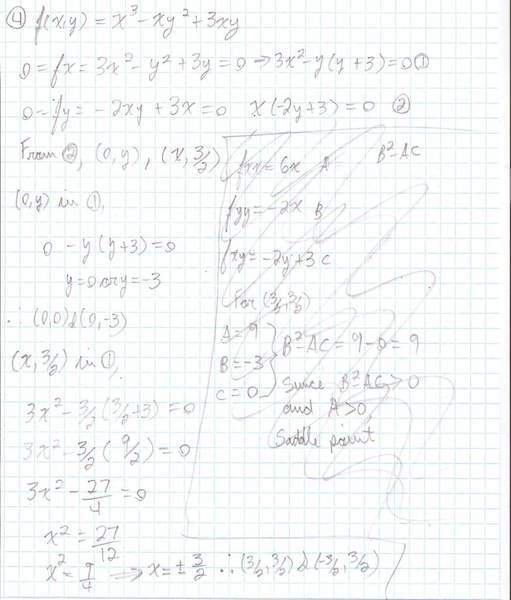 ④ f(x,y) = x³ - xy² + 3xy
0 = fx = 3x² - y² + 3y = 0 → 3x² - y(y + 3) = 0 ①
0 = fy = - 2xy + 3x = 0 x(-2y+3) = 0 ②
From ②, (0, y), (x, 3/2)
(0,y) in ①,
0 - y(y+3) = 0
y = 0 or y = -3
∴ (0,0) & (0,-3)
(x, 3/2) in ①,
3x² - 3/2(3/2+3) = 0
3x² - 3/2(9/2) = 0
3x² - 27/4 = 0
x² = 27/12
x² = 9/4 ⟹ x = ± 3/2 ∴ (3/2, 3/2) & (-3/2, 3/2)
fxx = 6x A B²-AC
fyy = -2x B
fxy = -2y+3 C
For (3/2, 3/2)
A = 9
B = -3
C = 0
B²-AC = 9-0 = 9
Since B²-AC > 0
and A > 0
Saddle point